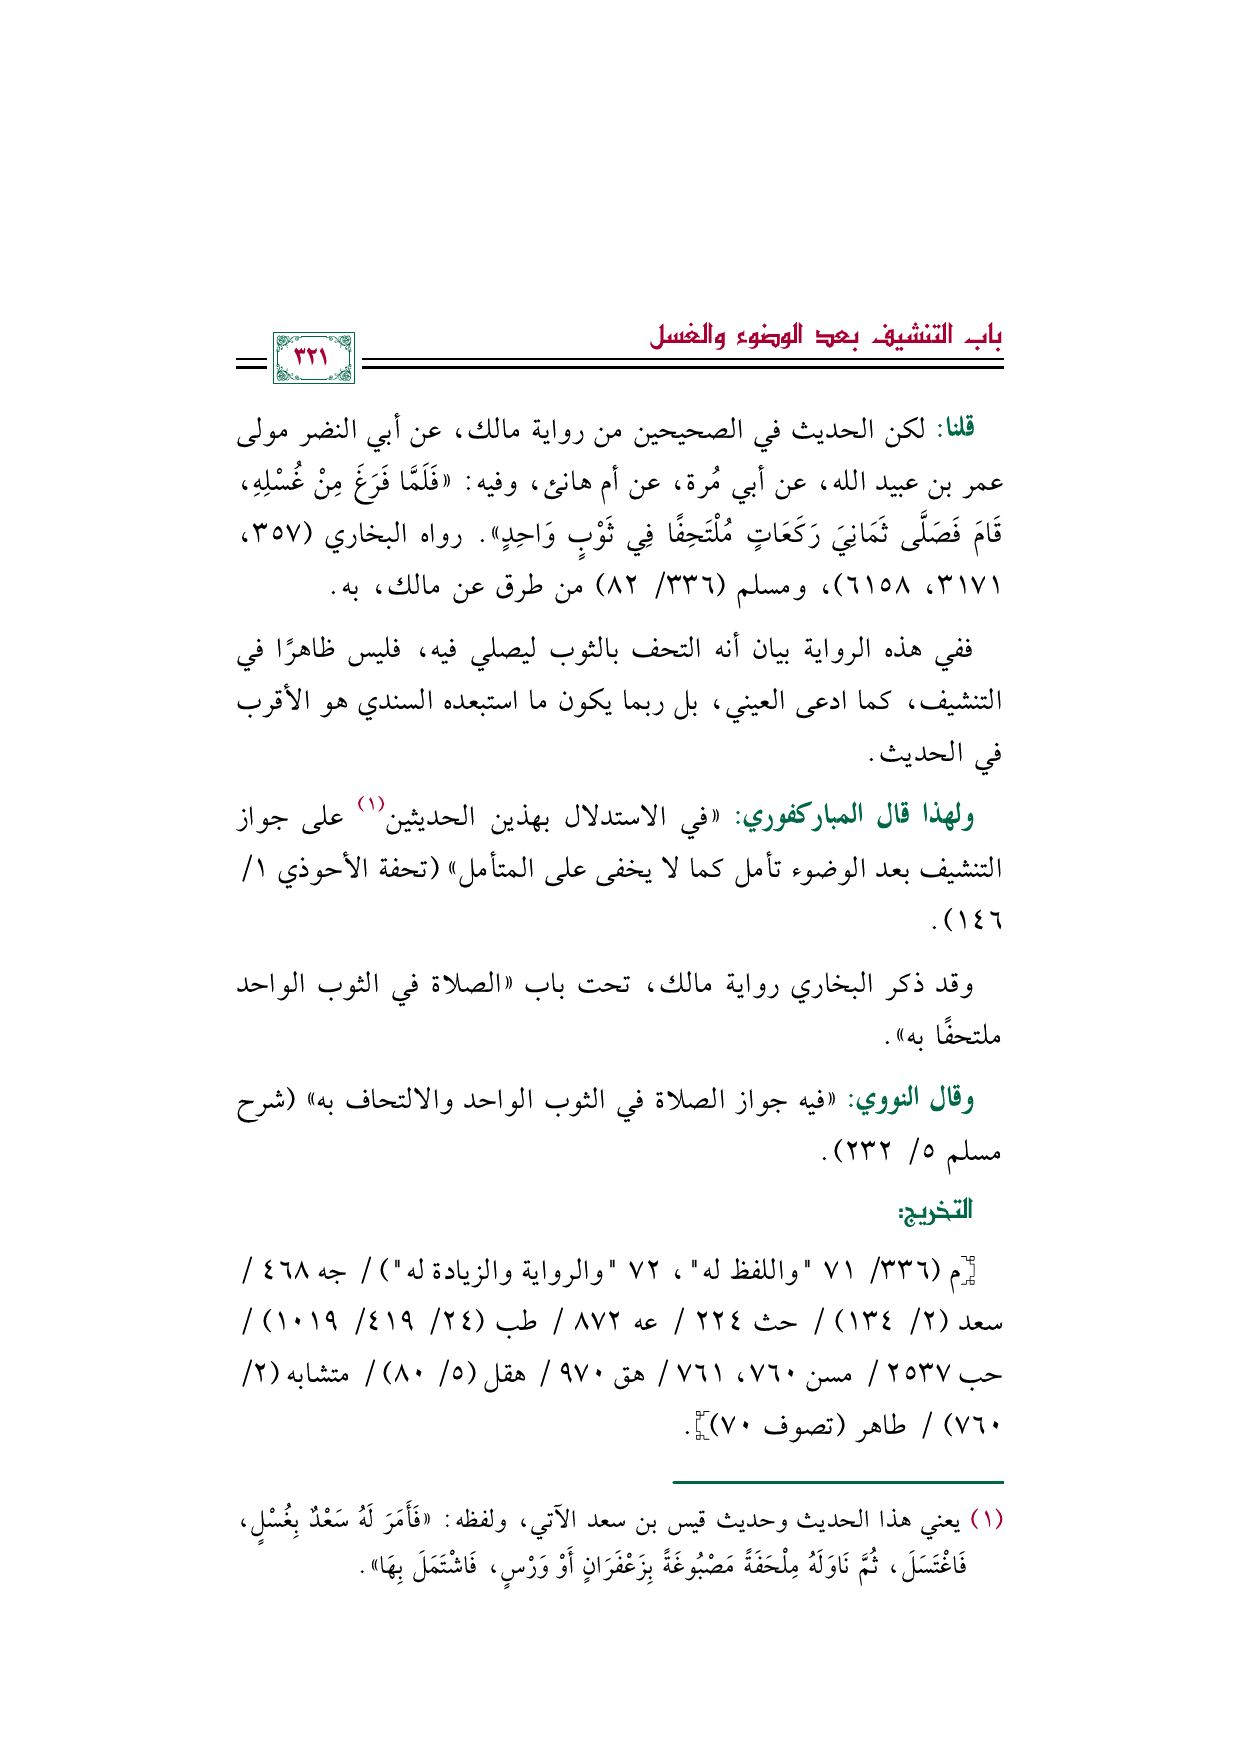 باب التنشيف بعد الوضوء والغسل
٣٢١
قلنا: لكن الحديث في الصحيحين من رواية مالك، عن أبي النضر مولى
عمر بن عبيد الله، عن أبي مُرة، عن أم هانئ، وفيه: «فَلَمَّا فَرَغَ مِنْ غُسْلِهِ،
قَامَ فَصَلَّى ثَمَانِيَ رَكَعَاتٍ مُلْتَحِفًا فِي ثَوْبٍ وَاحِدٍ». رواه البخاري (٣٥٧،
٣١٧١، ٦١٥٨)، ومسلم (٣٣٦/ ٨٢) من طرق عن مالك، به.
ففي هذه الرواية بيان أنه التحف بالثوب ليصلي فيه، فليس ظاهرًا في
التنشيف، كما ادعى العيني، بل ربما يكون ما استبعده السندي هو الأقرب
في الحديث.
ولهذا قال المباركفوري: «في الاستدلال بهذين الحديثين(١) على جواز
التنشيف بعد الوضوء تأمل كما لا يخفى على المتأمل» (تحفة الأحوذي ١/
١٤٦).
وقد ذكر البخاري رواية مالك، تحت باب «الصلاة في الثوب الواحد
ملتحفًا به».
وقال النووي: «فيه جواز الصلاة في الثوب الواحد والالتحاف به» (شرح
مسلم ٥/ ٢٣٢).
التخريج:
[م (٣٣٦/ ٧١ "واللفظ له"، ٧٢ "والرواية والزيادة له") / جه ٤٦٨ /
سعد (٢/ ١٣٤) / حث ٢٢٤ / عه ٨٧٢ / طب (٢٤/ ٤١٩/ ١٠١٩) /
حب ٢٥٣٧ / مسن ٧٦٠، ٧٦١ / هق ٩٧٠ / هقل (٥/ ٨٠) / متشابه (٢/
٧٦٠) / طاهر (تصوف ٧٠)].
(١) يعني هذا الحديث وحديث قيس بن سعد الآتي، ولفظه: «فَأَمَرَ لَهُ سَعْدٌ بِغُسْلٍ،
فَاغْتَسَلَ، ثُمَّ نَاوَلَهُ مِلْحَفَةً مَصْبُوغَةً بِزَعْفَرَانٍ أَوْ وَرْسٍ، فَاشْتَمَلَ بِهَا».